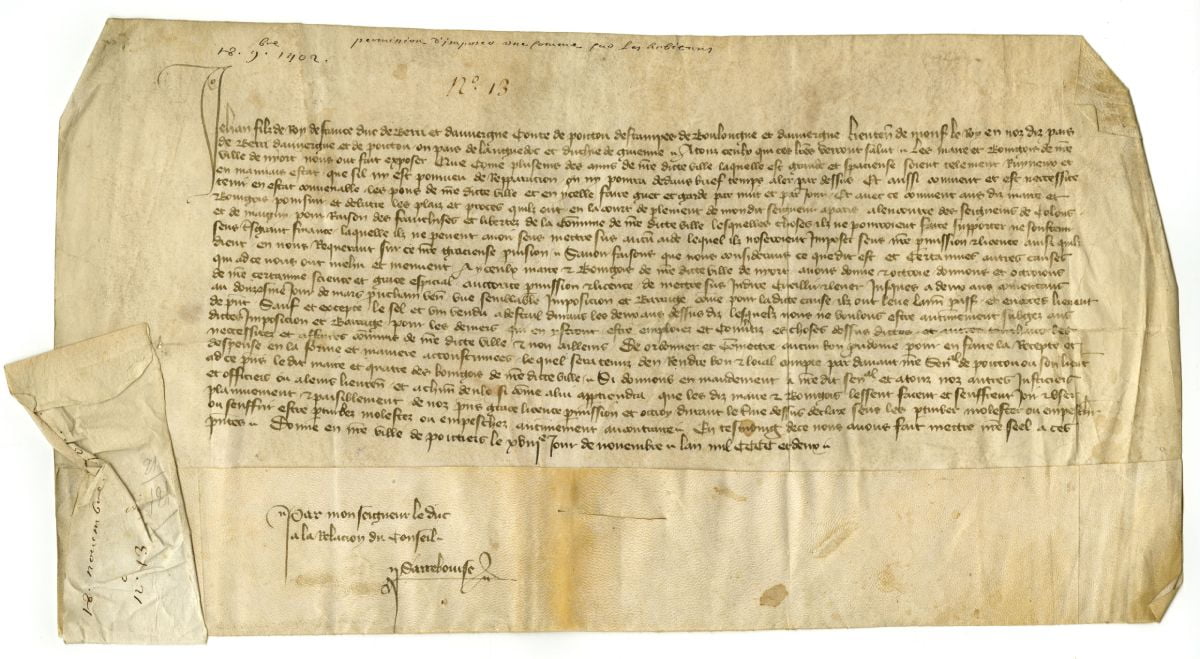 18. 9.bre 1402.
permission d'imposer une somme sur les habitans
No. 13
Jehan filz de Roy de france duc de Berri et dauvergne Conte de poitou destampes de Bouloingne et dauvergne Lieuten de mons. le Roy en nos diz pais
de Berri dauvergne et de poitou on pais de languedoc et duchie de guienne A tous ceulx qui ces lres verront salut Les maire et Bourgois de nre
ville de niort nous ont fait exposer Que come plusieurs des de nre dicte ville laquelle est grande et spacieuse soient telement Ruyneux et
en mauvais estat que sil ny est pourveu de Repparacion on ny pourra dedans brief temps aler par dessus Et aussi convient et est neccessite
tenir en estat convenable les pons de nre dicte ville et en ycelle faire guet et garde par nuit et par Jour Et avec ce convient aus diz maire et
Bourgois poursuir et les plaiz et proces quilz ont en la court de plement de mondit seigneur a paris alencontre des seigneurs de Coulons
et de maugun pour Raison des franchises et libertez de la Commune de nre dicte ville lesquelles choses ilz ne pourroient faire supporter ne soustenir
sens grant finance laquelle ilz ne pevent avoir sens mettre sus aucun aide lequel ilz noseroient Imposer sens nre pmission et licence ainsi quilz
dient en nous Requerant sur ce nre gracieuse pvision Savoir faisons que nous considerans ce que dit est et Certaines autres causes
qui ad ce nous ont meu et meuvent A yceulx maire et Bourgois de nre dicte ville de niort avons donne et octroie donnons et octroions
de nre certainne science et grace especial auctorite pmission et licence de mettre sus Indire Cueillir et lever Jusques a deux ans commencant
au douzesme Jour de mars prouchain ven une semblable Imposicion et Barrage come pour ladicte cause ilz ont leve lann passe et encores lievent
de pnt Sauf et excepte le sel et vin vendu a destail durans les deux ans dessus diz lesquelz nous ne voulons estre aucunement subgez aus
dictes Imposicion et Barrage pour les deniers qui en ystront estre emploiez et Convtiz es choses dessus dictes et autres touchans les
neccessitez et affaires communs de nre dicte ville et non ailleurs De ordenner et Comettre aucun bon preudome pour en faire la Recepte et
despense en la forme et maniere acoustumees lequel sera tenuz den Rendre bon et loial compte par davant nre Senal de poitou ou son lieut
ad ce pns le dit maire et quatre des bourgois de nre dicte ville Si donnons en mandement a nre dit senal et a touz noz autres Justiciers
et officiers ou a leurs lieuten et a chun deulx si come a lui appartendra que les diz maire et Bourgois lessent facent et seuffrent Joir et user
plainnement et paisiblement de noz pns grace licence pmission et octroy durant le temps dessus declaire sens les ptuber molester ou empescher
ou seuffrir estre ptubez molestez ou empeschez aucunement au contraire En tesmoing de ce nous avons fait mettre nre seel a ces
pntes Donne en nre ville de poictiers le xviije Jour de novembre lan mil CCCC et deux
Par monseigneur le duc
a la Relacion du Conseil
18. novembre
no. 13